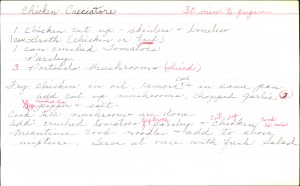 Chicken Cacciatore 30 min to prepare
1 Chicken cut up - skinless & boneless
1 can Broth (chicken or veal)
1 can crushed Tomatoes
Parsley
3 Portobelo Mushrooms (sliced)
Fry chicken in oil, remove & in same pan
add cut up mushrooms, chopped garlic, (2)
& salt
Cook till mushrooms are done
Add crushed tomatoes, parsley & chicken cut up cook 20 min
Meantime cook noodles & add to above
mixture. Serve at once with fresh salad